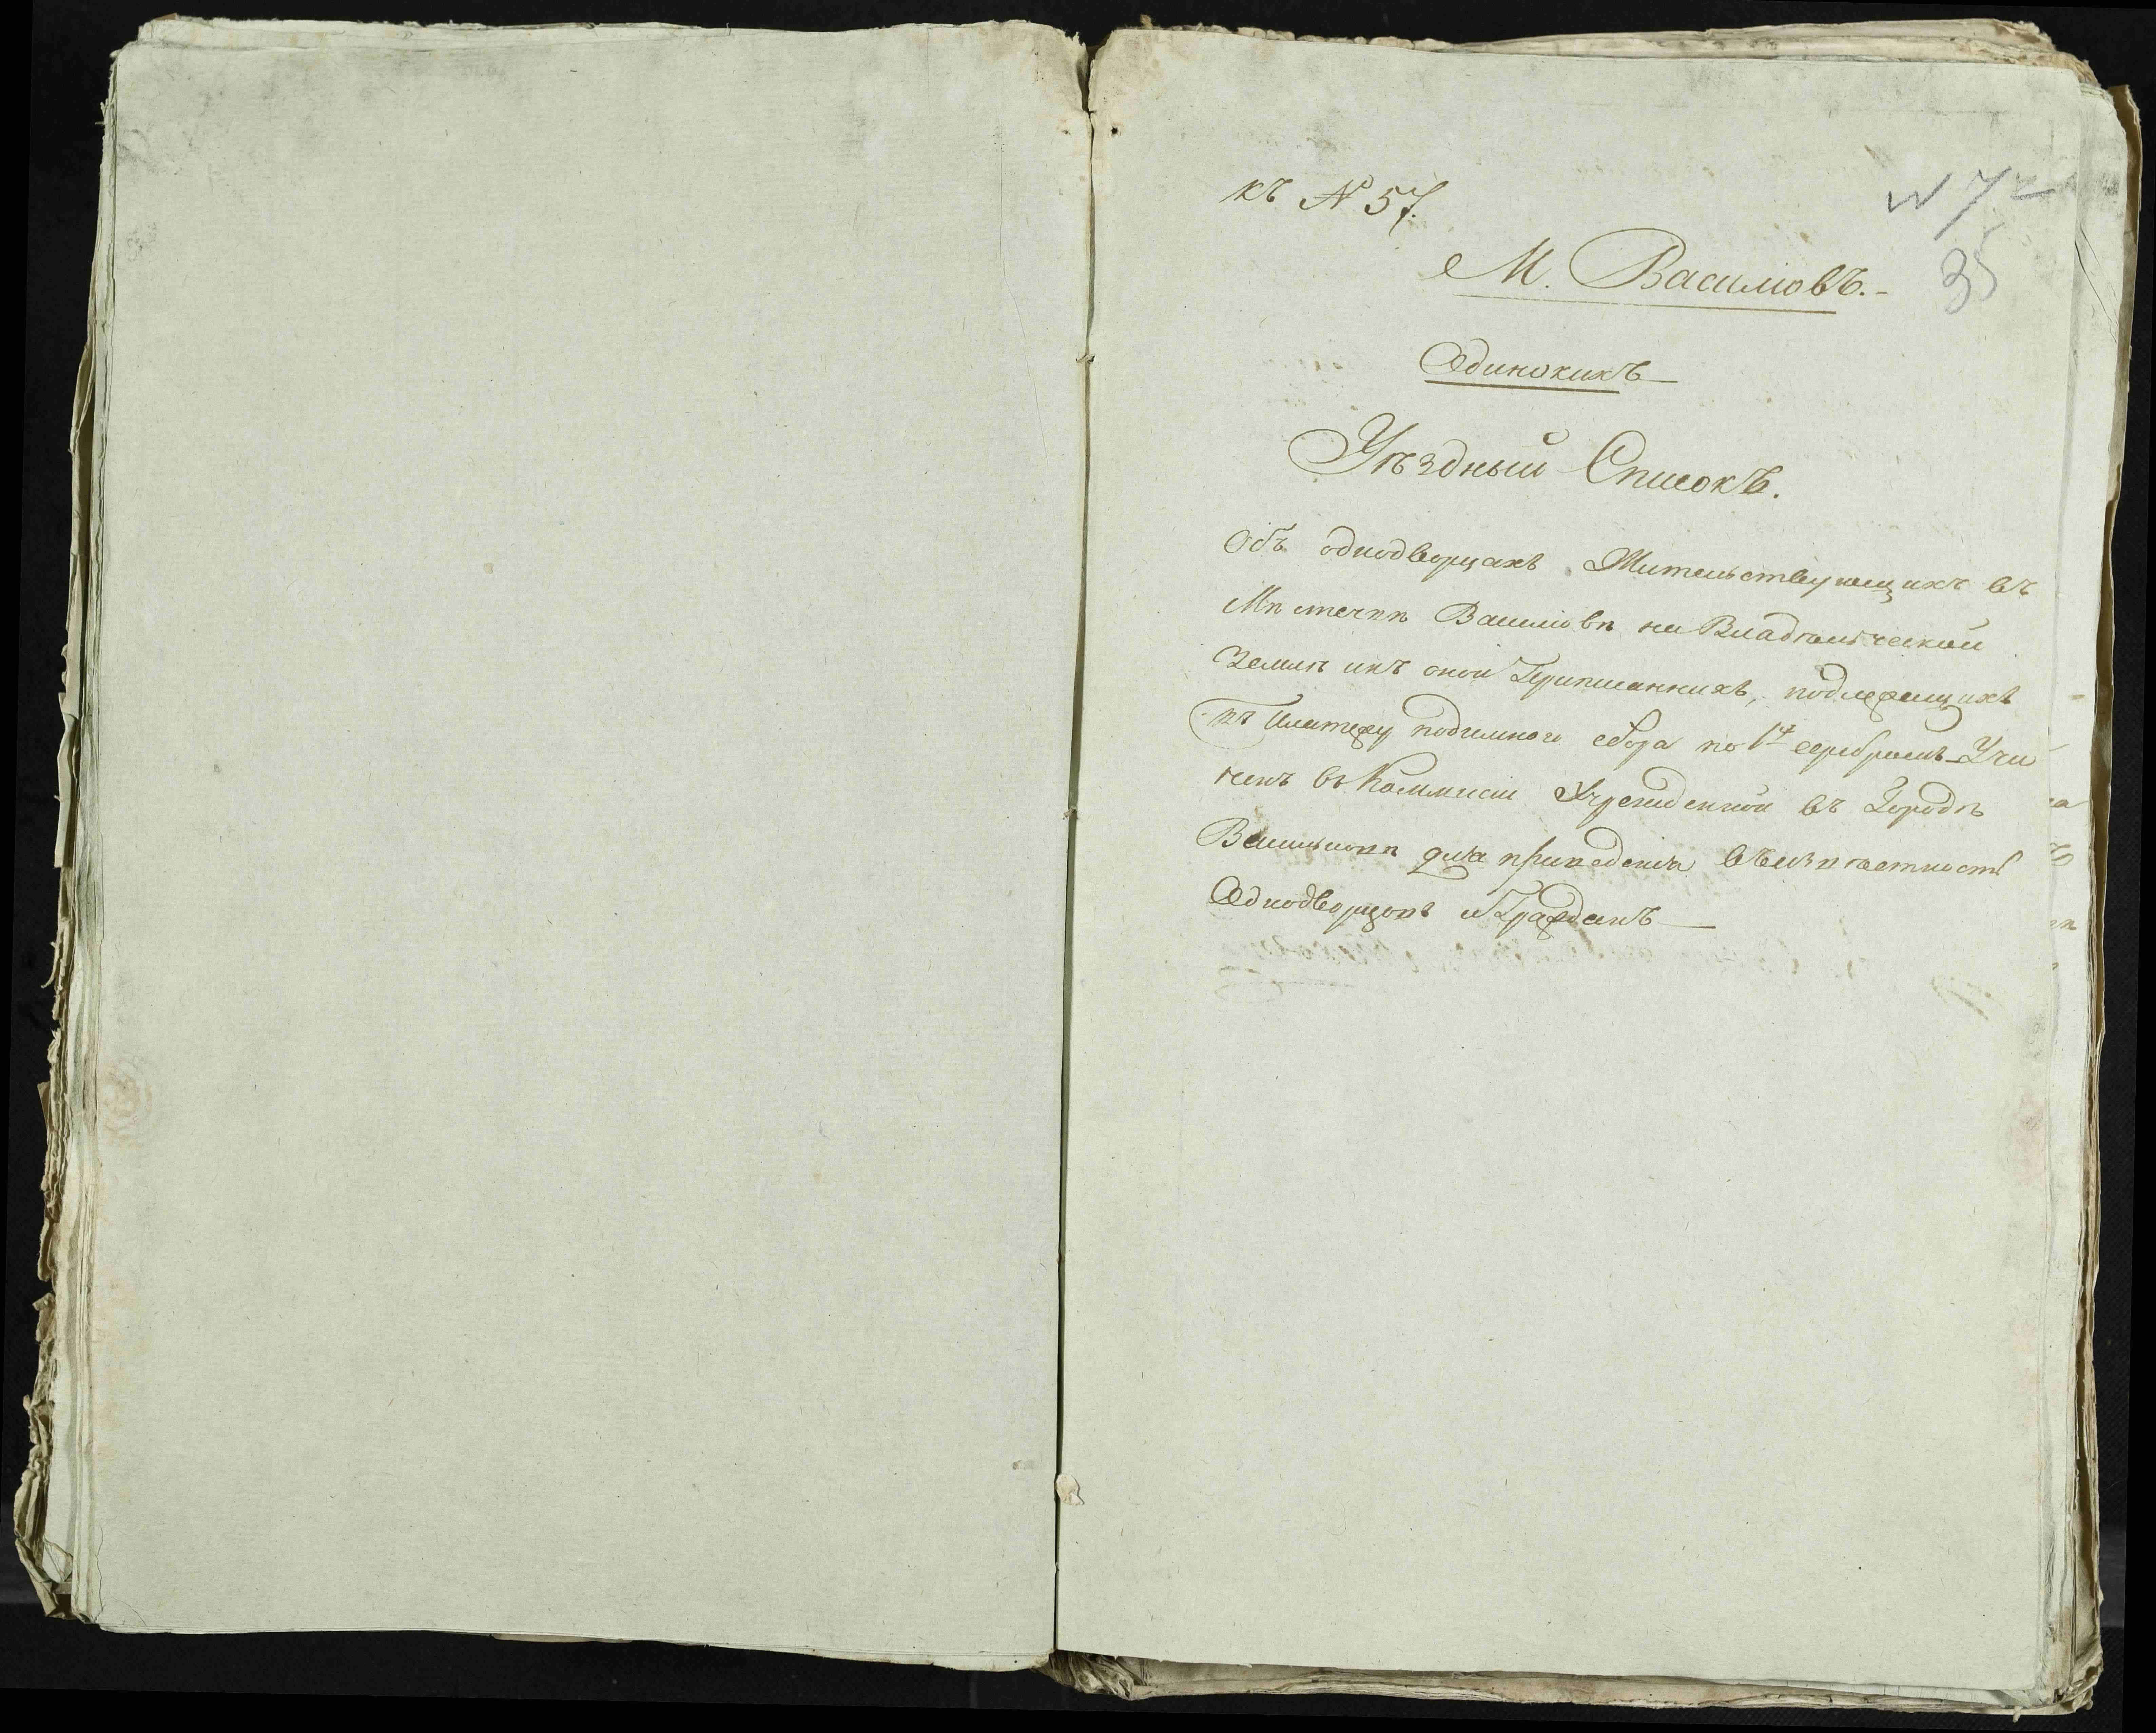 къ № 57.
№ 72
35
М. Василковъ.-
Одинокихъ
Уѣздный Списокъ.
Объ однодворцахъ Жительствующихъ въ
Мѣстечкѣ на Владѣльческой
Землѣ икъ оной Приписанныхъ, подлежащихъ
къ Платежу подымнаго сбора по серебромъ Учи
ненъ въ Коммисіи Учрежденной въ Городѣ
для приведенія въ
Однодворцовъ и Гражданъ